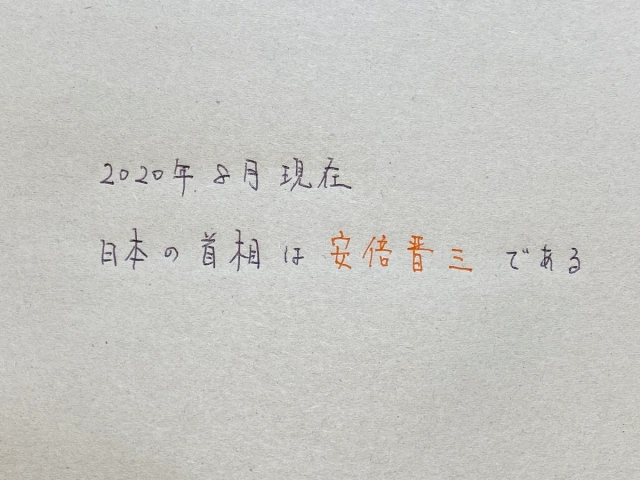 2020年8月現在
日本の首相は安倍晋三である